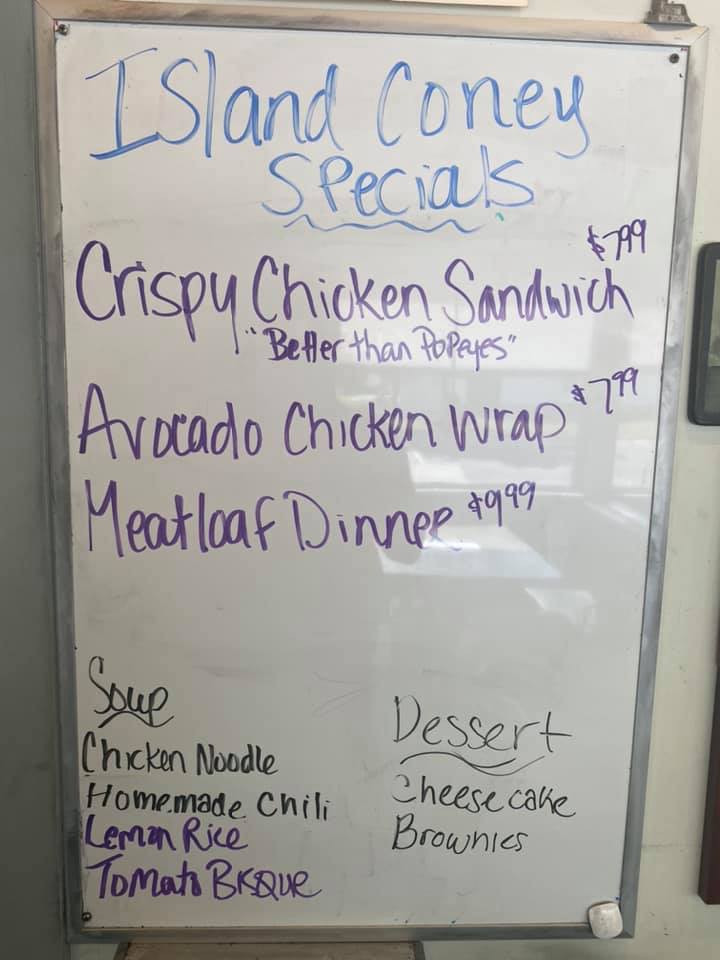 Island Coney
Specials
$7.99
Crispy Chicken Sandwich
"Better than Popeyes"
Avocado Chicken Wrap $7.99
Meatloaf Dinner $9.99
Soup
Chicken Noodle
Homemade Chili
Lemon Rice
Tomato Bisque
Dessert
Cheesecake
Brownies